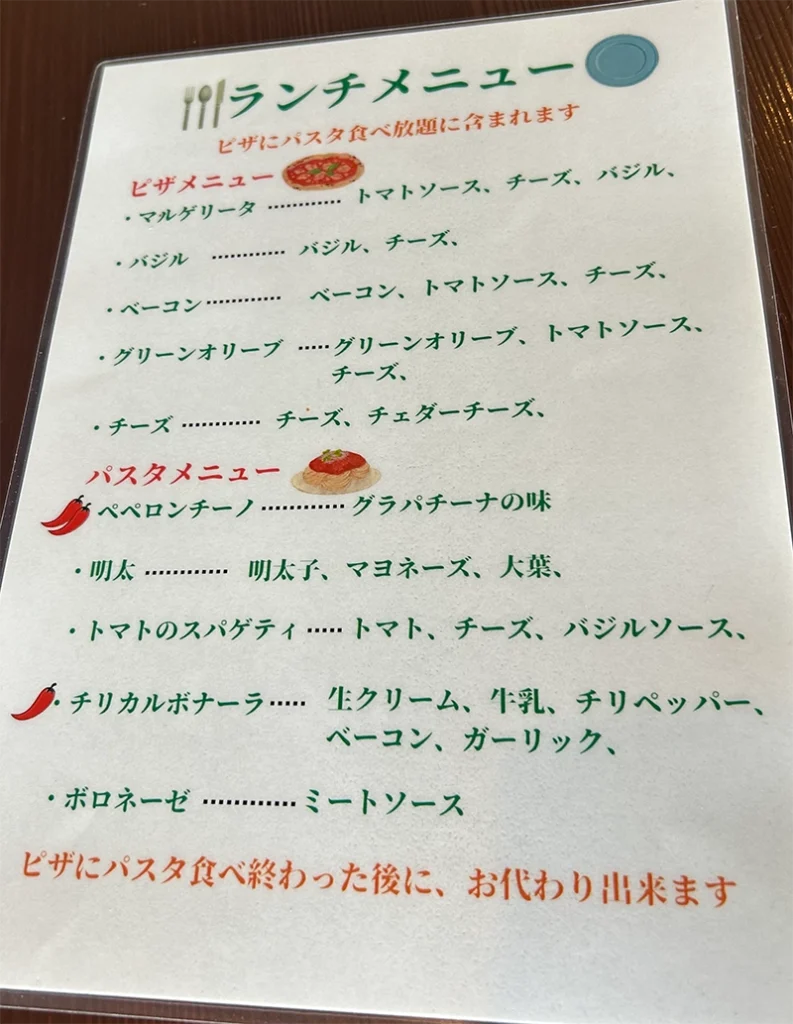 ランチメニュー
ピザにパスタ食べ放題に含まれます
ピザメニュー
・マルゲリータ ………… トマトソース、チーズ、バジル、
・バジル ………… バジル、チーズ、
・ベーコン ………… ベーコン、トマトソース、チーズ、
・グリーンオリーブ ····· グリーンオリーブ、トマトソース、
チーズ、
・チーズ ………… チーズ、チェダーチーズ、
パスタメニュー
ペペロンチーノ ………… グラパチーナの味
・明太 ………… 明太子、マヨネーズ、大葉、
・トマトのスパゲティ ····· トマト、チーズ、バジルソース、
・チリカルボナーラ ····· 生クリーム、牛乳、チリペッパー、
ベーコン、ガーリック、
・ボロネーゼ ………… ミートソース
ピザにパスタ食べ終わった後に、お代わり出来ます